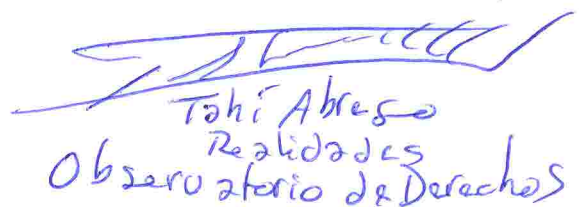 Tahí Abrego
Realidades
Observatorio de Derechos